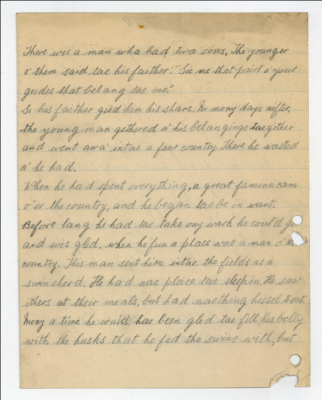 There wes a man wha had twa sons. The younger
o' them said tae his faither: "Gie me that pairt o' your
gudes that belang tae me."
So his faither gied him his share. No mony days aifter,
the young man gethered a' his belangings taegither
and went awa' intae a faur country. There he wasted
a' he had.
When he had spent everything, a great famine cam
o'er the country, and he began tae be in want.
Before lang he had tae take ony wark he could
and wes gled, when he fun a place wae a man o'
country. This man sent him intae the fields as a
swineherd. He had nae place tae sleep in. He saw
ithers at their meals, but had naething hissel
Mony a time he wuid hae been gled tae fill his belly
with the husks that he fed the swine with, but